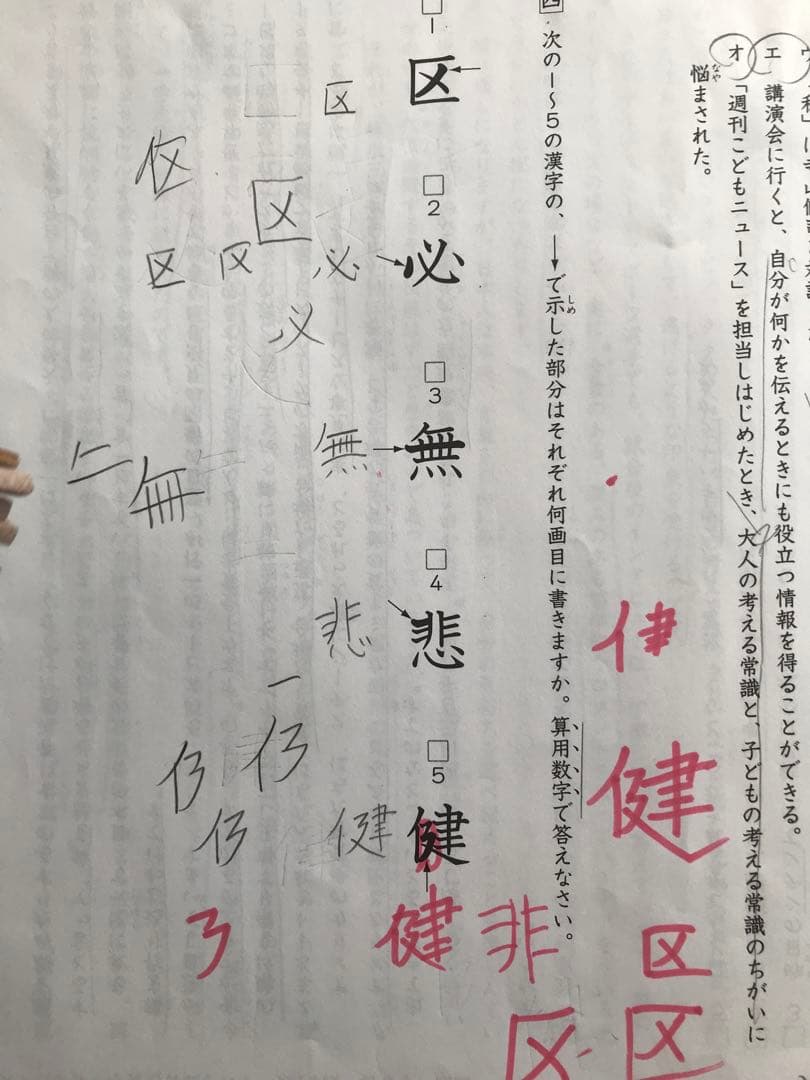 エ 講演会に行くと、自分が何かを伝えるときにも役立つ情報を得ることができる。
オ 「週刊こどもニュース」を担当しはじめたとき、大人の考える常識と、子どもの考える常識のちがいに
悩まされた。
なや
四 次の1〜5の漢字の、→で示した部分はそれぞれ何画目に書きますか。算用数字で答えなさい。
しめ
□1 区
□2 必
□3 無
□4 悲
□5 健
区
必
無
悲
健
区
区
区
無
健
健
非
区
区
区